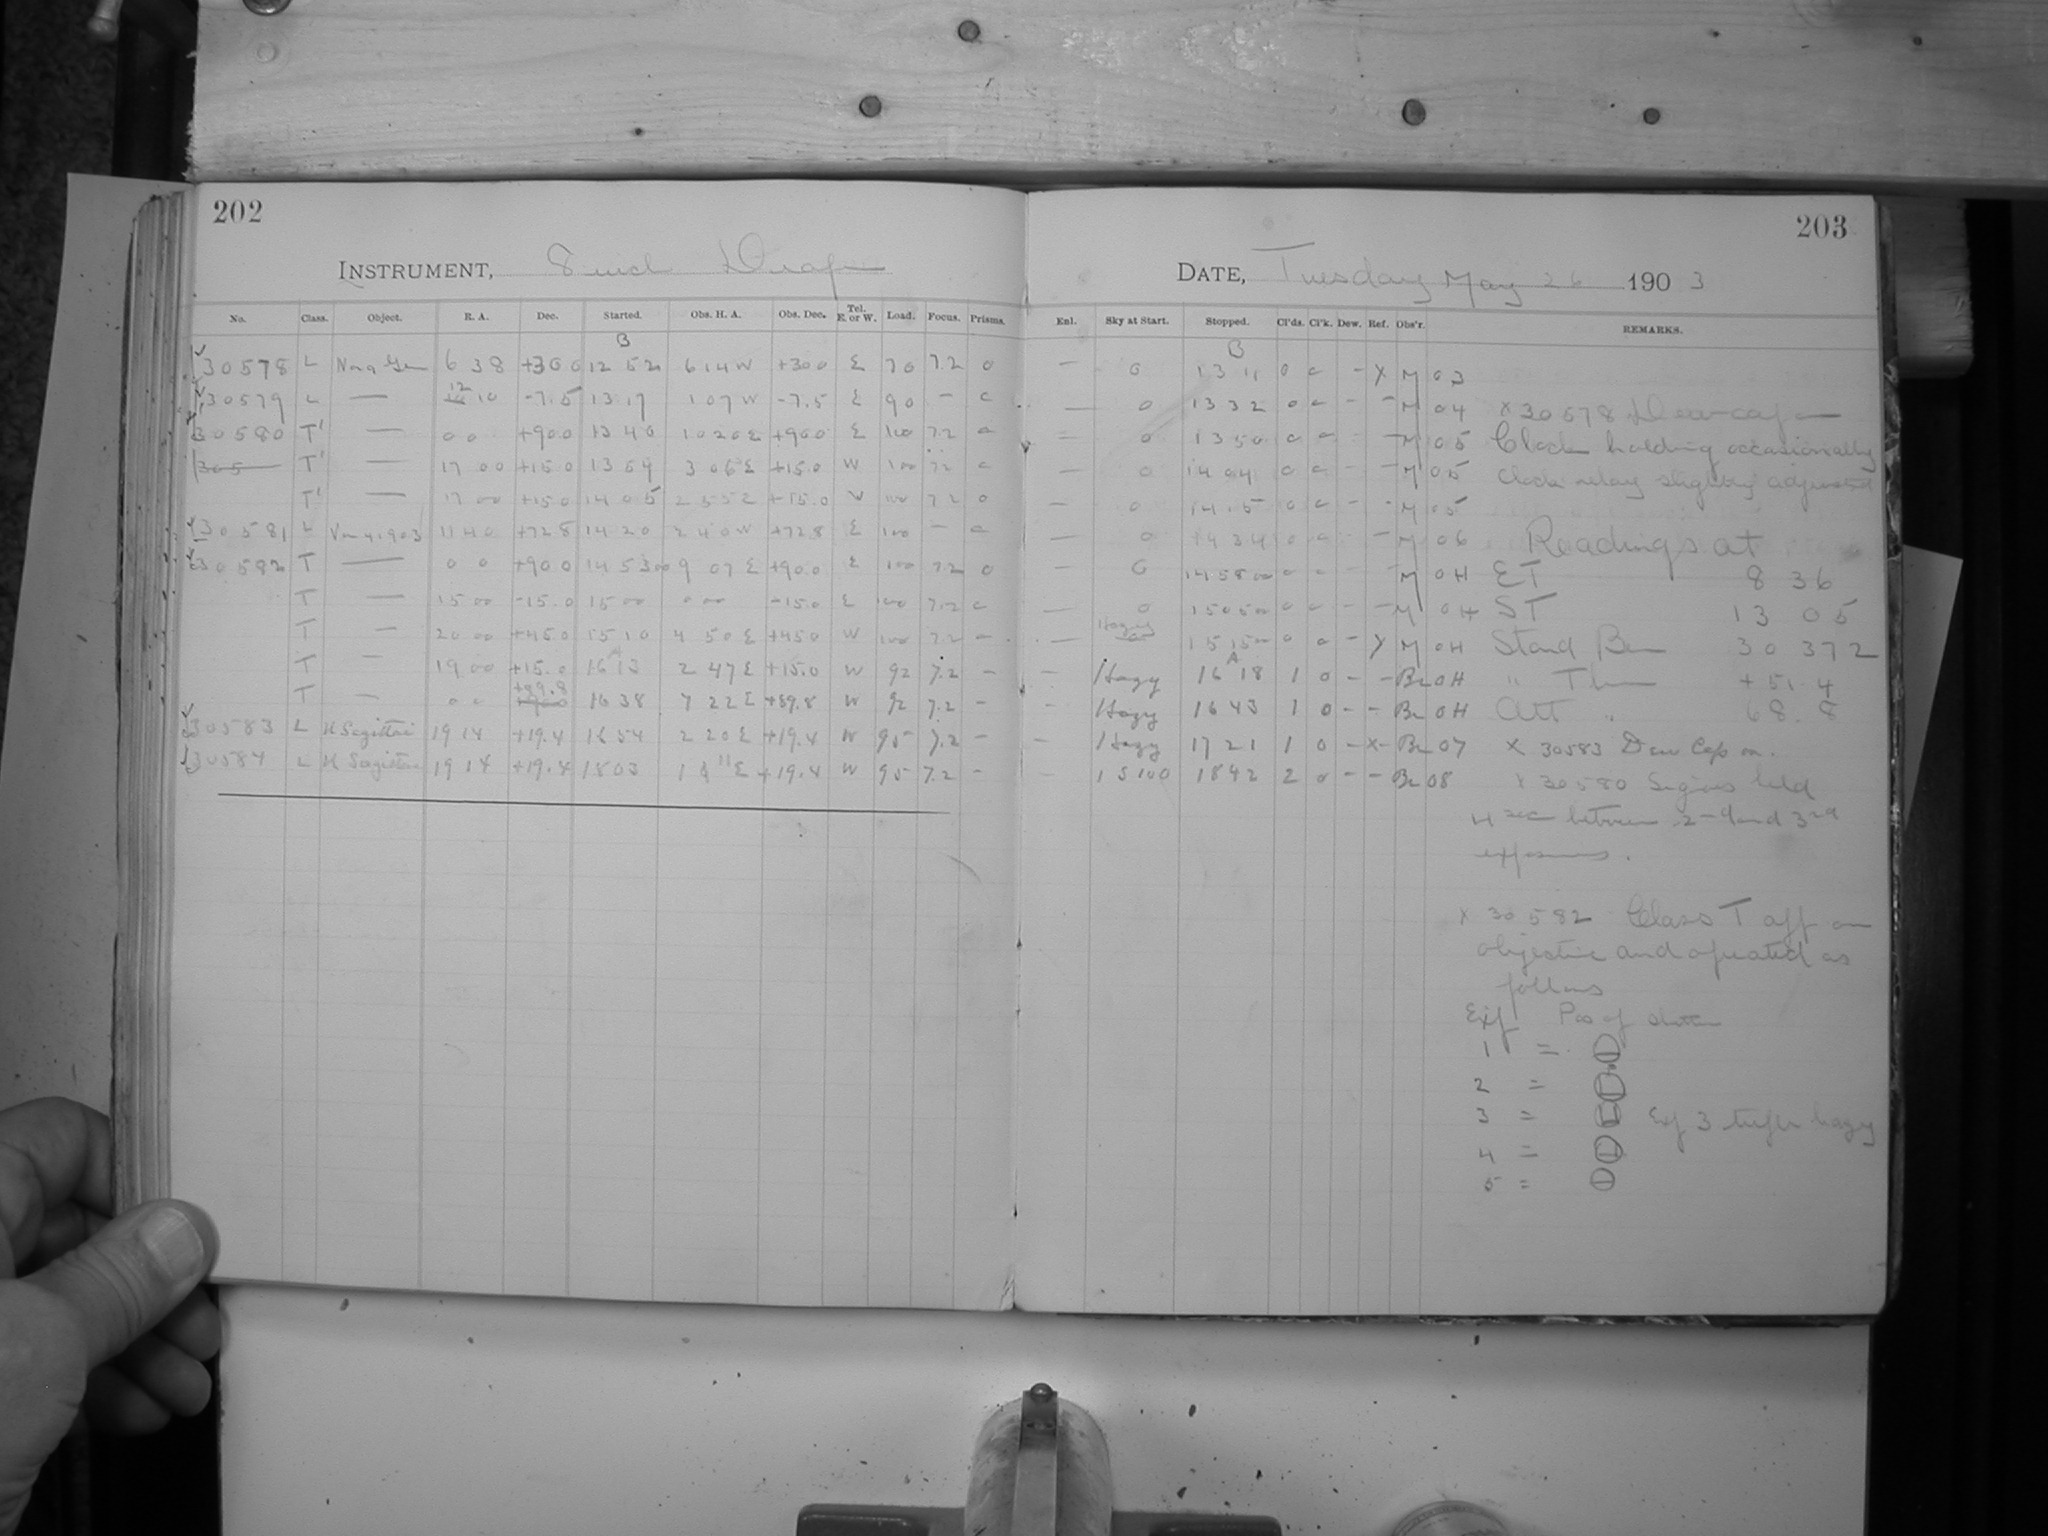 202
INSTRUMENT, 8 inch Draper
No. Class. Object. R. A. Dec. Started. Obs. H. A. Obs. Dec. Tel. E. or W. Load. Focus. Prisms.
B
30578 L Nova Gem 6 38 +30 0 12 52 6 14 W +30 0 E 70 7.2 0
30579 L — 12 10 -7.5 13 17 1 07 W -7.5 E 90 –
30580 T' — 0 0 +90.0 13 40 10 20 E +90.0 E 100 7.2
305 T' — 17 00 +15.0 13 59 3 06 E +15.0 W 100 7.2
T' — 17 00 +15.0 14 05 2 55 E +15.0 W 100 7.2 0
30581 L Var 4.1903 11 40 +72.8 14 20 2 40 W +72.8 E 100 –
30582 T — 0 0 +90.0 14 53 00 9 07 E +90.0 E 100 7.2 0
T — 15 00 -15.0 15 00 0 00 -15.0 E 100 7.2
T — 20 00 +45.0 15 10 4 50 E +45.0 W 100 7.2 –
A
T — 19 00 +15.0 16 13 2 47 E +15.0 W 92 7.2 –
T — 0 0 +89.8 16 38 7 22 E +89.8 W 92 7.2 –
30583 L U Sagittae 19 14 +19.4 16 54 2 20 E +19.4 W 95 7.2 –
30584 L U Sagittae 19 14 +19.4 18 03 1 11 E +19.4 W 95 7.2 –
203
DATE, Tuesday May 26 1903
Enl. Sky at Start. Stopped. Cl'ds. Cl'k. Dew. Ref. Obs'r. REMARKS.
B
— 0 13 11 0 0 – X M 03
— 0 13 32 0 0 – – M 04 X 30578 Dew cap on
— 0 13 50 0 0 – – M 05 Clock holding occasionally
— 0 14 04 0 0 – – M 05 Clock relay slightly adjusted
— 0 14 15 0 0 – – M 05
— 0 14 34 0 – M 06 Readings at
0 14 58 00 0 – M 0H ET 8 36
— 0 15 05 00 0 0 – – M 0H ST 13 05
— Hazy 15 15 00 0 0 – X M 0H Stand Bar 30 372
A
— Hazy 16 18 1 0 – – Br 0H " Ther +51.4
— Hazy 16 43 1 0 – – Br 0H Att " 68.8
— Hazy 17 21 1 0 – X – Br 07 X 30583 Dew Cap on.
— 1 S 100 18 42 2 0 – – Br 08 X 30580 held
4 sec between 2nd and 3rd
exposures.
X 30582 Class T app on
objective and operated as
follows
Exp Pos of shutter
1 =
2 =
3 = Exp 3 hazy
4 =
5 =